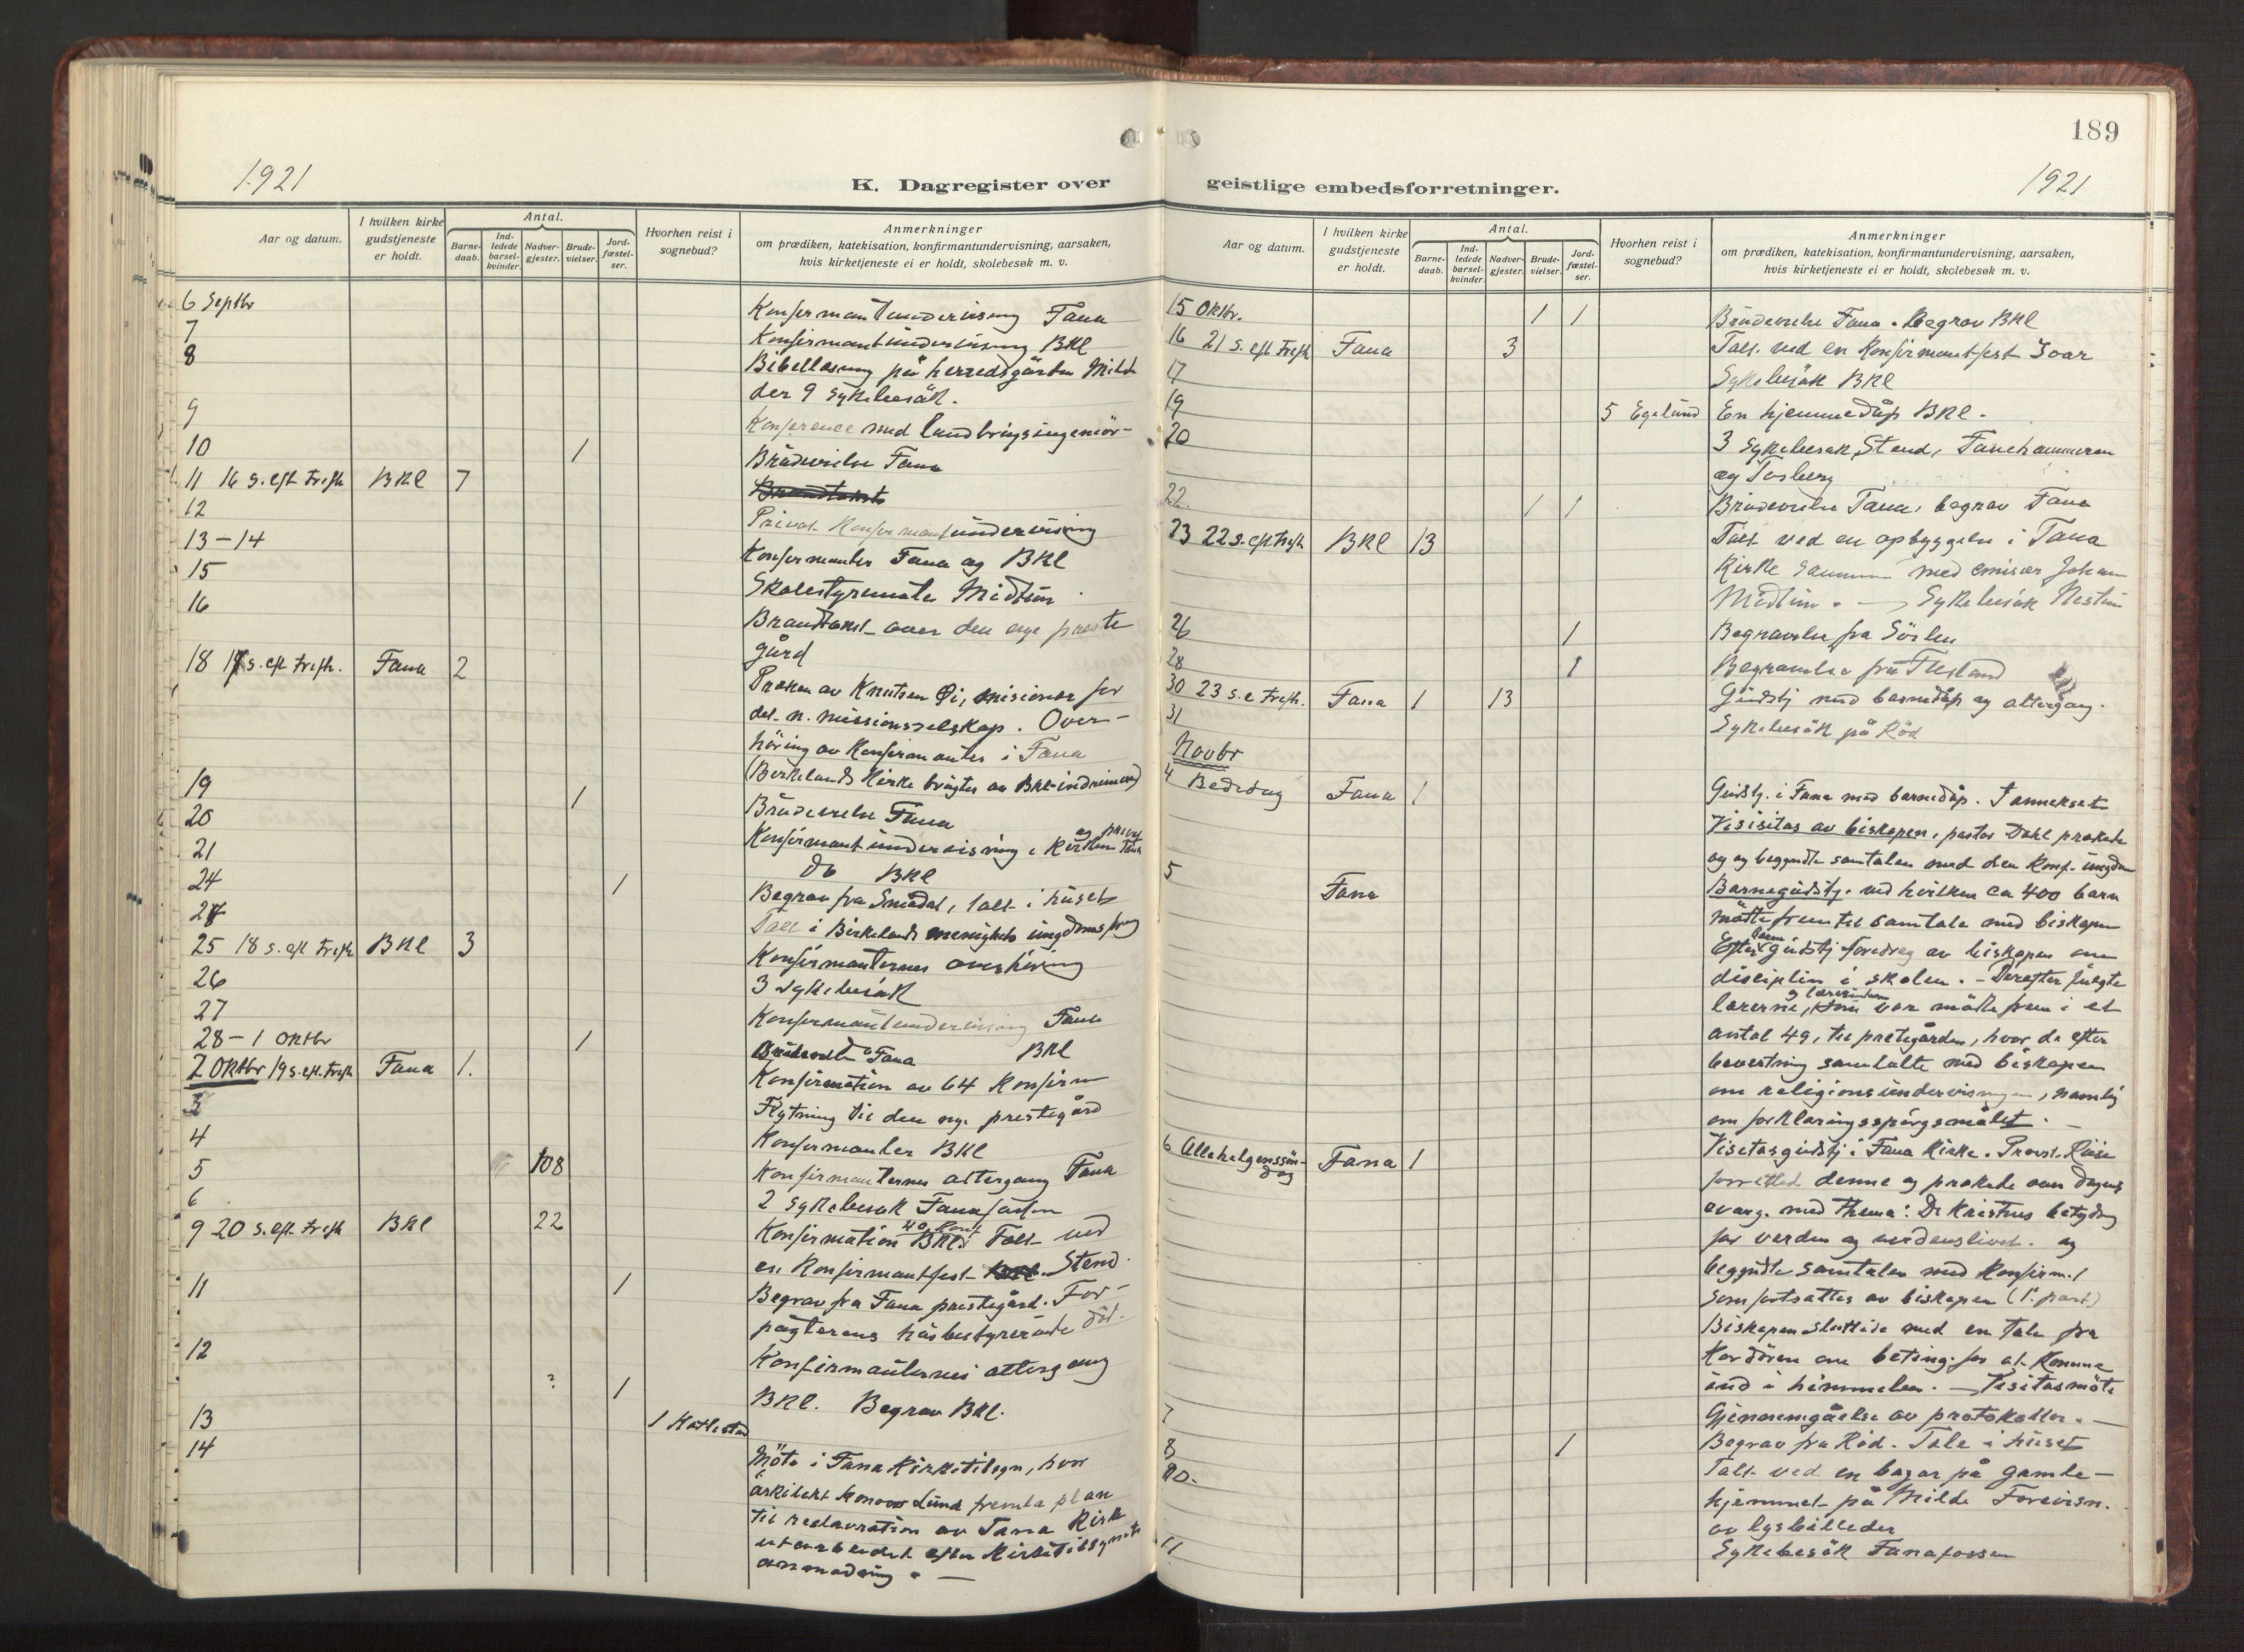 189
1921
1921
K. Dagregister over
geistlige embedsforretninger.
Aar og datum.
I hvilken kirke gudstjeneste er holdt.
Antal.
Barne-daab.
Ind-ledede barsel-kvinder.
Nadver-gjester.
Brude-vielser.
Jord-fæstel-ser.
Hvorhen reist i sognebud?
Anmerkninger
om prædiken, katekisation, konfirmantundervisning, aarsaken,
hvis kirketjeneste ei er holdt, skolebesøk m. v.
6 Septbr Konfirmantundervisning Fana
7 Konfirmantundervisning BKl
8 Bibellesning på herredsgården Milde
der 9 Sykebesök.
9 Konference med landbrugsingeniör
10 1 Brudevielse Fana
11 16 s. eft Trefh BKl 7
12 Privat Konfirmantundervisning
13-14 Konfirmanter Fana og BKl
15 Skolestyremöte Midtun
16 Brandtakst over den nye preste
gård
18 s. eft Trefh. Fana 2
Præken av Knutsen Öi, misionær for
det n. missionsselskap. Over-
höring av Konfirmanter i Fana
(Birkelands Kirke brugtes av BKl-indremisj)
19 1 Brudevielse Fana
20 Konfirmantundervisning i Kirken Fana
21 Do BKl
24 1 Begrav fra Smådal, talt i huset
Talt i Birkelands menighets ungdomsforng
25 18 s. eft Trefh BKl 3 Konfirmanternes overhöring
26 3 sykebesök
27 Konfirmantundervisning Fana
28-1 Oktbr 1 Brudevielse Fana BKl
2 Oktbr 19 s. eft. Trefh Fana 1. Konfirmation av 64 Konfirm
3 Flytning til den nye prestegård
4 Konfirmanter BKl
5 108 Konfirmanternes altergang Fana
6 2 Sykebesök Fana
9 20 s. eft. Trefh BKl 22 Konfirmation BKl 40 Konf Talt ved
en Konfirmantfest Stend.
11 1 Begrav fra Fana prestegård. For-
pagterens husbestyrerinde död.
12 Konfirmanternes altergang
? 1 BKl. Begrav BKl.
13 1 Hatlestad
14 Möte i Fana Kirketilsyn, hvor
arkitekt Konow Lund fremla plan
til restauration av Fana Kirke
utarbeidet efter Kirketilsynets
anmodning. —
Aar og datum.
I hvilken kirke gudstjeneste er holdt.
Antal.
Barne-daab.
Ind-ledede barsel-kvinder.
Nadver-gjester.
Brude-vielser.
Jord-fæstel-ser.
Hvorhen reist i sognebud?
Anmerkninger
om prædiken, katekisation, konfirmantundervisning, aarsaken,
hvis kirketjeneste ei er holdt, skolebesøk m. v.
15 Oktbr. 1 1 Brudevielse Fana. Begrav BKl
16 21 s. eft Trefh Fana 3 Talt ved en Konfirmantfest
17 Sykebesök BKl
19 5 Egelund En hjemmedåp BKl.
20 3 Sykebesök Stend, Fanehammeren
og
22. 1 1 Brudevielse Fana, begrav Fana
23 22 s. eft Trefh BKl 13 Talt ved en opbyggelse i Fana
Kirke sammen med emisær Johan
Midtun. — Sykebesök Nestun
26 1 Begravelse fra Sörlen
28 1 Begravelse fra
30 23 s. e Trefh. Fana 1 13 Gudstj med barnedåp og altergang.
31 Sykebesök på Röd
Novbr
4 Bededag Fana 1 Gudstj. i Fana med barnedåp. I annekset
Visitas av biskopen, pastor Dahl prækede
og begyndte samtalen med den Konf. ungdom
5 Fana Barnegudstj. ved hvilken ca 400 barn
mötte frem til samtale med biskopen
Efter barnegudstj foredrag av biskopen om
disciplin i skolen. — Derefter fulgte
lærerne, og lærerinderne som var mött frem i et
antal 49, til prestegården, hvor de efter
bevertning samtalte med biskopen
om religionsundervisningen, namlig
om forklaringsspörgsmålet. —
6 Allehelgenssön-
dag Fana 1 Visitasgudstj i Fana Kirke. Provst Riise
forrettet denne og prækede over dagens
evang. med thema: De Kristnes betydng
for verden og verdenslivet. og
begyndte samtalen med Konfirm.
som fortsattes av biskopen (1. part)
Biskopen sluttede med en tale fra
Kordören om beting. for at komme
ind i himmelen. — Visitasmöte
7 Gjennemgåelse av protokoller. —
8 1 Begrav fra Röd. Tale i huset
10. Talt ved en bazar på gamle-
hjemmet på Milde Forevisn.
av lysbilleder
11 Sykebesök Fanafossen